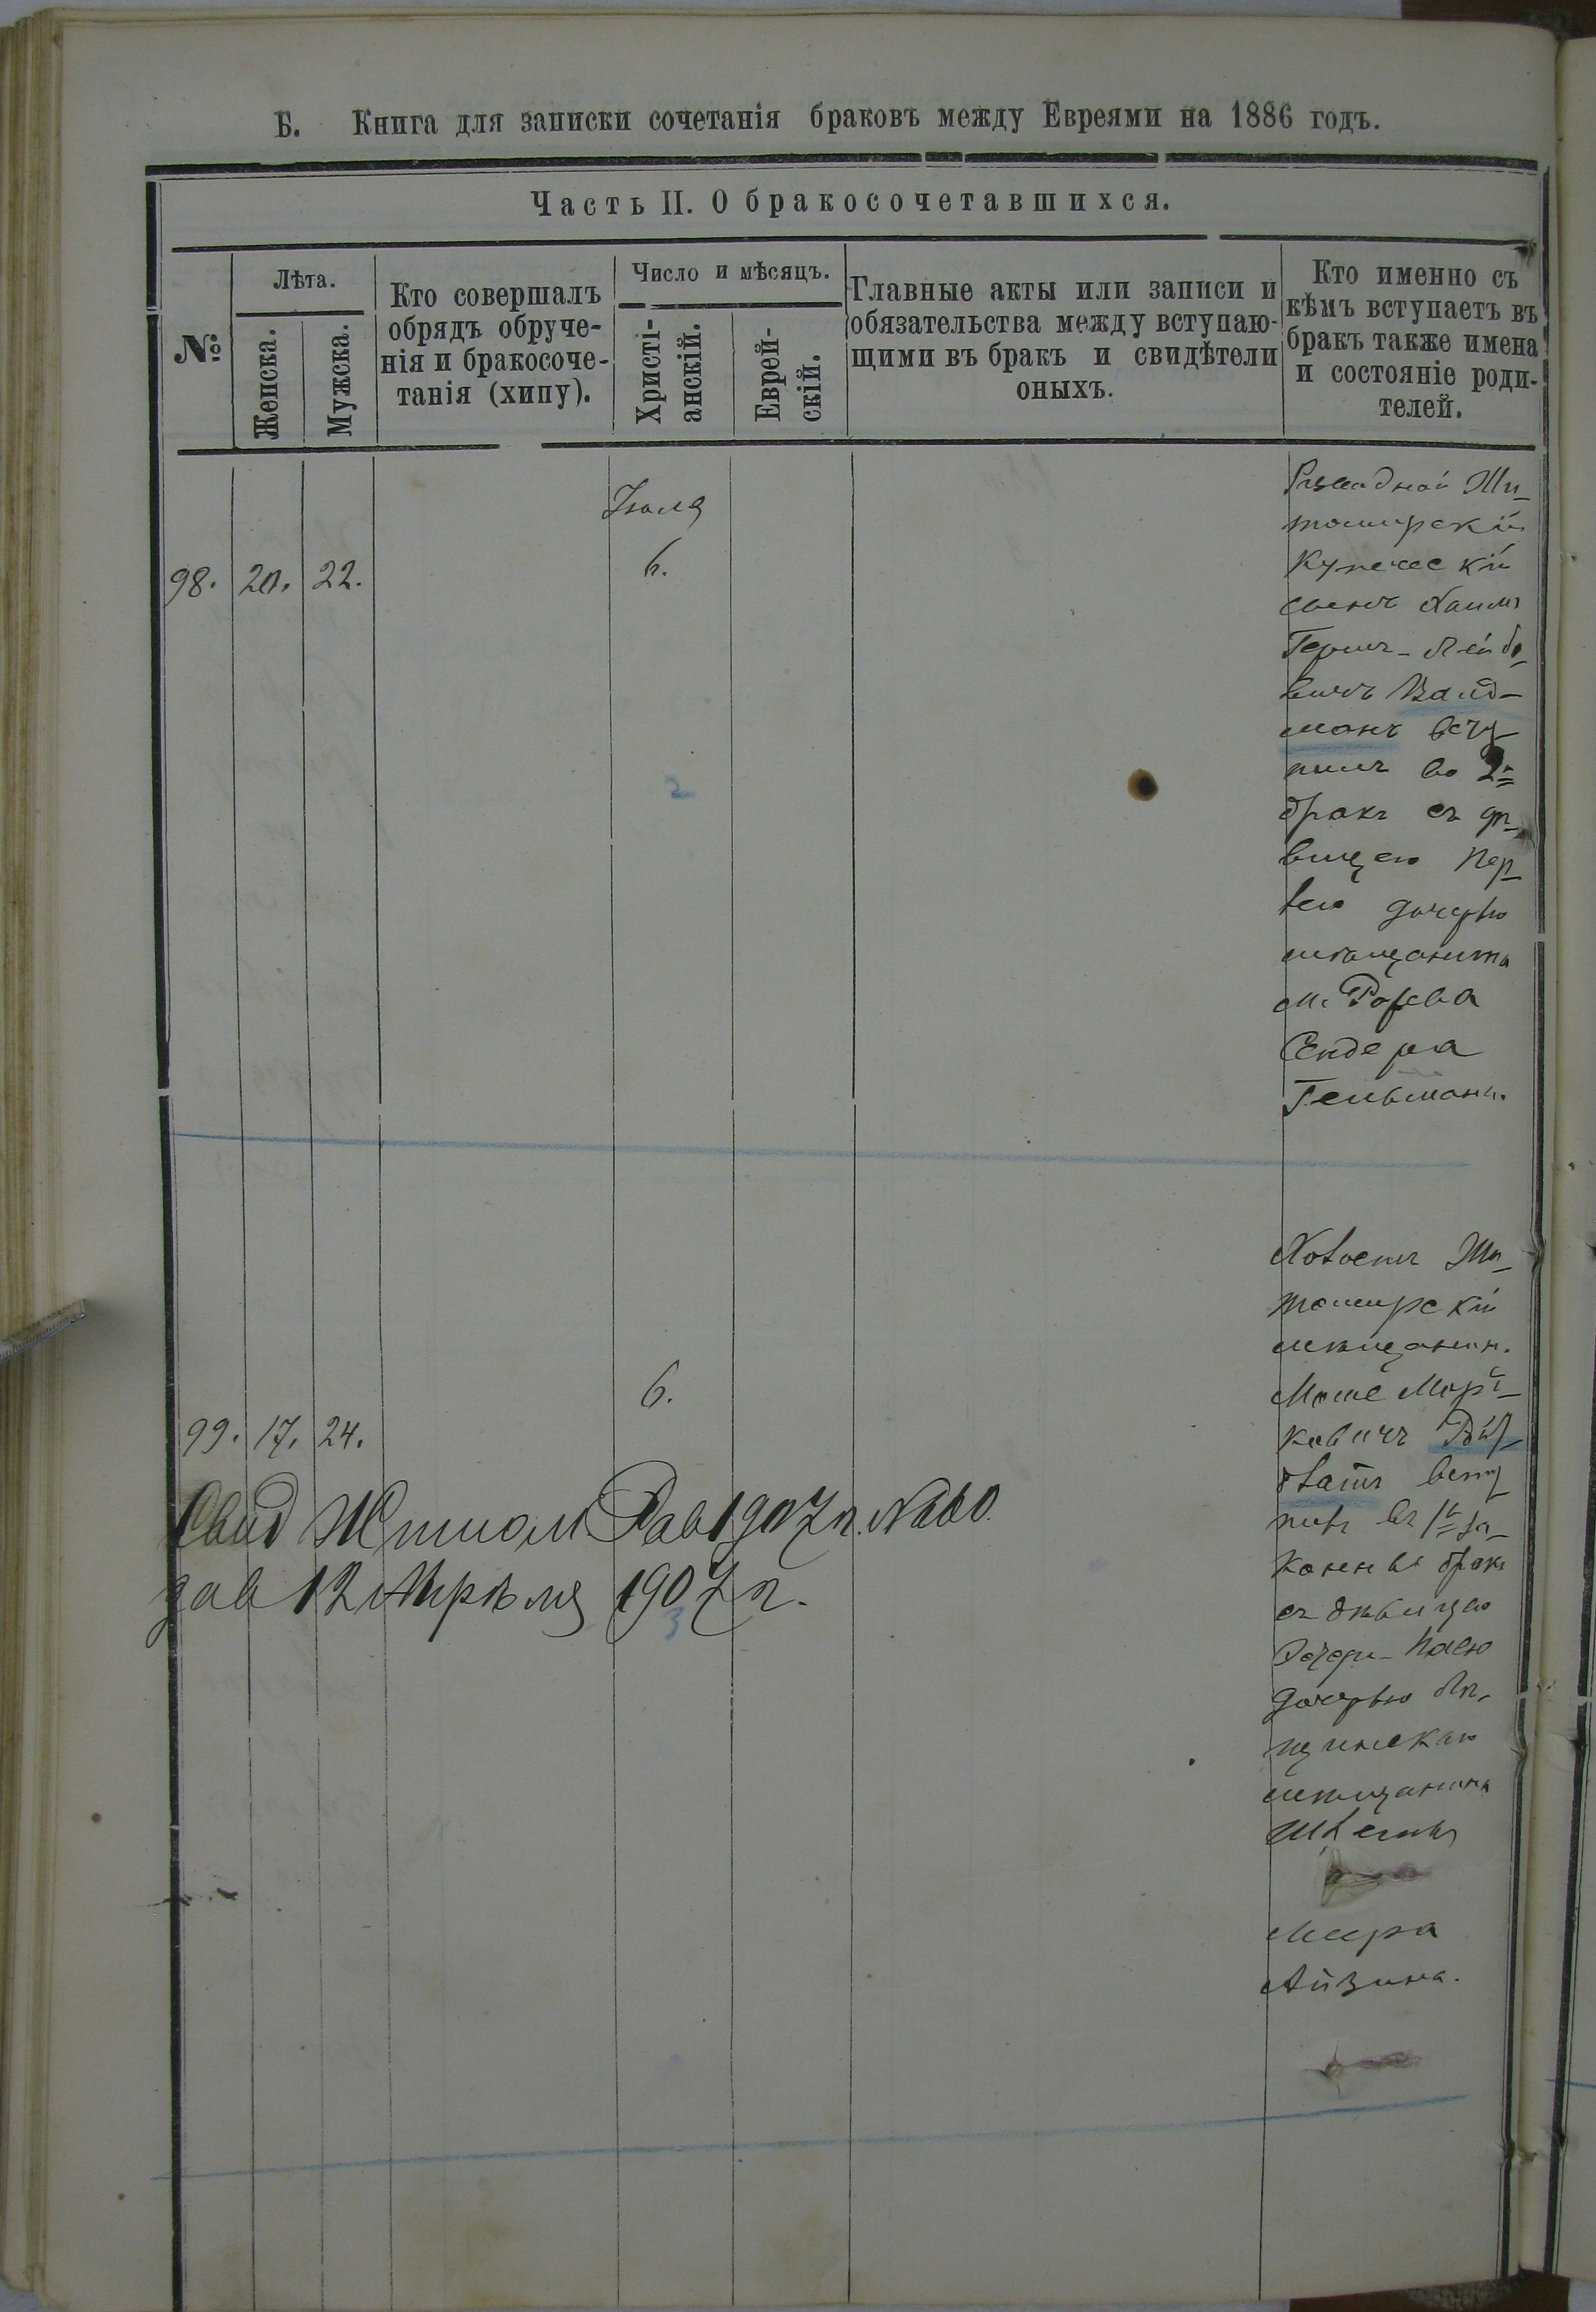 Б. Книга для записки сочетанія браковъ между Евреями на 1886 годъ.
Часть II. О бракосочетавшихся.
№
Лѣта.
Женска.
Мужска.
Кто совершалъ
обрядъ обруче-
нія и бракосоче-
танія (хипу).
Число и мѣсяцъ.
Христі-
анскій.
Еврей-
скій.
Главные акты или записи и
обязательства между вступаю-
щими въ бракъ и свидѣтели
оныхъ.
Кто именно съ
кѣмъ вступаетъ въ
бракъ также имена
и состояніе роди-
телей.
Іюля
98. 20. 22.
6.
Жи-
томирскій
Купеческій
сынъ Хаимъ
Герш-Лейбо-
вичъ Валд-
манъ всту-
пилъ во 2й
бракъ съ дѣ-
вицею Пер-
лею дочерью
мѣщанина
м.
Сендера
Гельмана.
2
99. 17. 24.
6.
Холостъ Жи-
томирскій
мѣщанин.
Моше Морт-
ковичъ
всту-
пилъ въ 1й за-
конный бракъ
съ дѣвицею
дочерью
мѣщанина
Меера
Айзина.
Свид Житом Рав 1907 г.
дав 12 Апрѣля 1907 г.
3